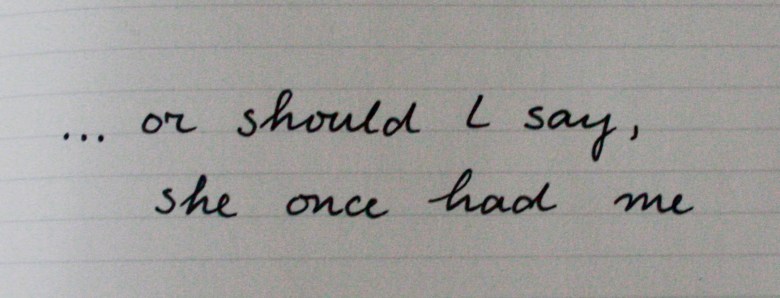 ... or should I say,
she once had me